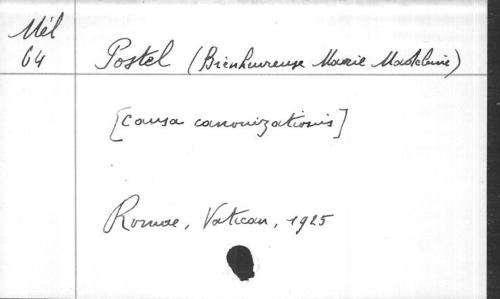 Mél
64
Postel (Bienheureuse Marie Madeleine)
[Causa canonizationis]
Romae, Vatican, 1925